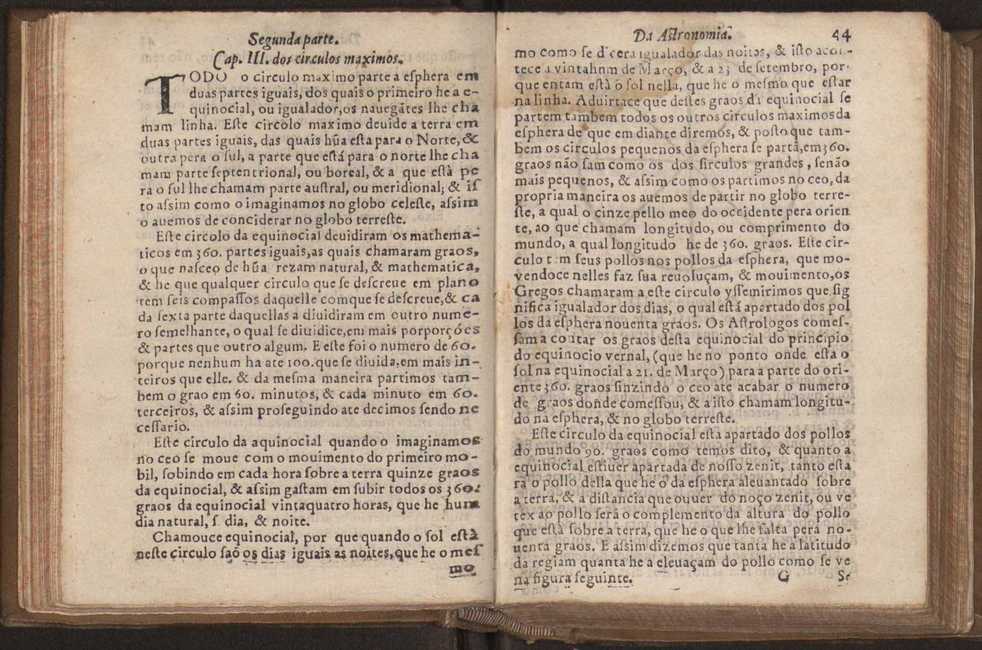 Segunda parte.
Cap. III. dos circulos maximos.
TODO o circulo maximo parte a esphera em
duas partes iguais, dos quais o primeiro he a e-
quinocial, ou igualador, os nauegãtes lhe cha
mam linha. Este circolo maximo deuide a terra em
duas partes iguais, das quais hũa esta para o Norte, &
outra pera o sul, a parte que está para o norte lhe cha
mam parte septentrional, ou boreal, & a que està pe
ra o sul lhe chamam parte austral, ou meridional; & is
to assim como o imaginamos no globo celeste, assim
o auemos de conciderar no globo terreste.
Este circolo da equinocial deuidiram os mathema-
ticos em 360. partes iguais, as quais chamaram graos,
o que nasceo de hũa rezam natural, & mathematica,
& he que qualquer circulo que se descreue em plano
tem seis compassos daquelle com que se descreue, & ca
da sexta parte daquellas a diuidiram em outro nume-
ro semelhante, o qual se diuidice, em mais porporções
& partes que outro algum. E este foi o numero de 60.
porque nenhum ha ate 100. que se diuida, em mais in-
teiros que elle. & da mesma maneira partimos tam-
bem o grao em 60. minutos, & cada minuto em 60.
terceiros, & assim proseguindo ate decimos sendo ne
cessario.
Este circulo da aquinocial quando o imaginamos
no ceo se moue com o mouimento do primeiro mo-
bil, sobindo em cada hora sobre a terra quinze graos
da equinocial, & assim gastam em subir todos os 360.
graos da equinocial vintaquatro horas, que he hum
dia natural, s dia, & noite.
Chamouce equinocial, por que quando o sol està
neste circulo saõ os dias iguais as noites, que he o mes
mo
Da Astronomia. 44
mo como se d'cera igualador das noites, & isto acon-
tece a vintahum de Março, & a 23 de setembro, por-
que entam està o sol nella, que he o mesmo que estar
na linha. Aduirtace que destes graos da equinocial se
partem tambem todos os outros circulos maximos da
esphera de que em diante diremos, & posto que tam-
bem os circulos pequenos da esphera se partã, em 360.
graos não sam como os dos sirculos grandes, senão
mais pequenos, & assim como os partimos no ceo, da
propria maneira os auemos de partir no globo terre-
ste, a qual o cinze pello meo do occidente pera orien
te, ao que chamam longitudo, ou comprimento do
mundo, a qual longitudo he de 360. graos. Este cir-
culo tem seus pollos nos pollos da esphera, que mo-
vendoce nelles faz sua reuoluçam, & mouimento, os
Gregos chamaram a este circulo yssemirimos que sig
nifica igualador dos dias, o qual està apartado dos pol
los da esphera nouenta graos. Os Astrologos comes-
sam a contar os graos desta equinocial do principio
do equinocio vernal, (que he no ponto onde esta o
sol na equinocial a 21. de Março) para a parte do ori-
ente 360. graos sinzindo o ceo ate acabar o numero
de graos donde comessou, & a isto chamam longitu-
do na esphera, & no globo terreste.
Este circulo da equinocial està apartado dos pollos
do mundo 90. graos como temos dito, & quanto a
equinocial estiuer apartada de nosso zenit, tanto esta
rà o pollo della que he o da esphera aleuantado sobre
a terra, & a distancia que ouuer do noço zenit, ou ve
tex ao pollo serà o complemento da altura do pollo
que està sobre a terra, que he o que lhe falta perà no-
uenta graos. E assim dizemos que tanta he a latitudo
da regiam quanta he a eleuaçam do pollo como se ve
na figura seguinte. G Se